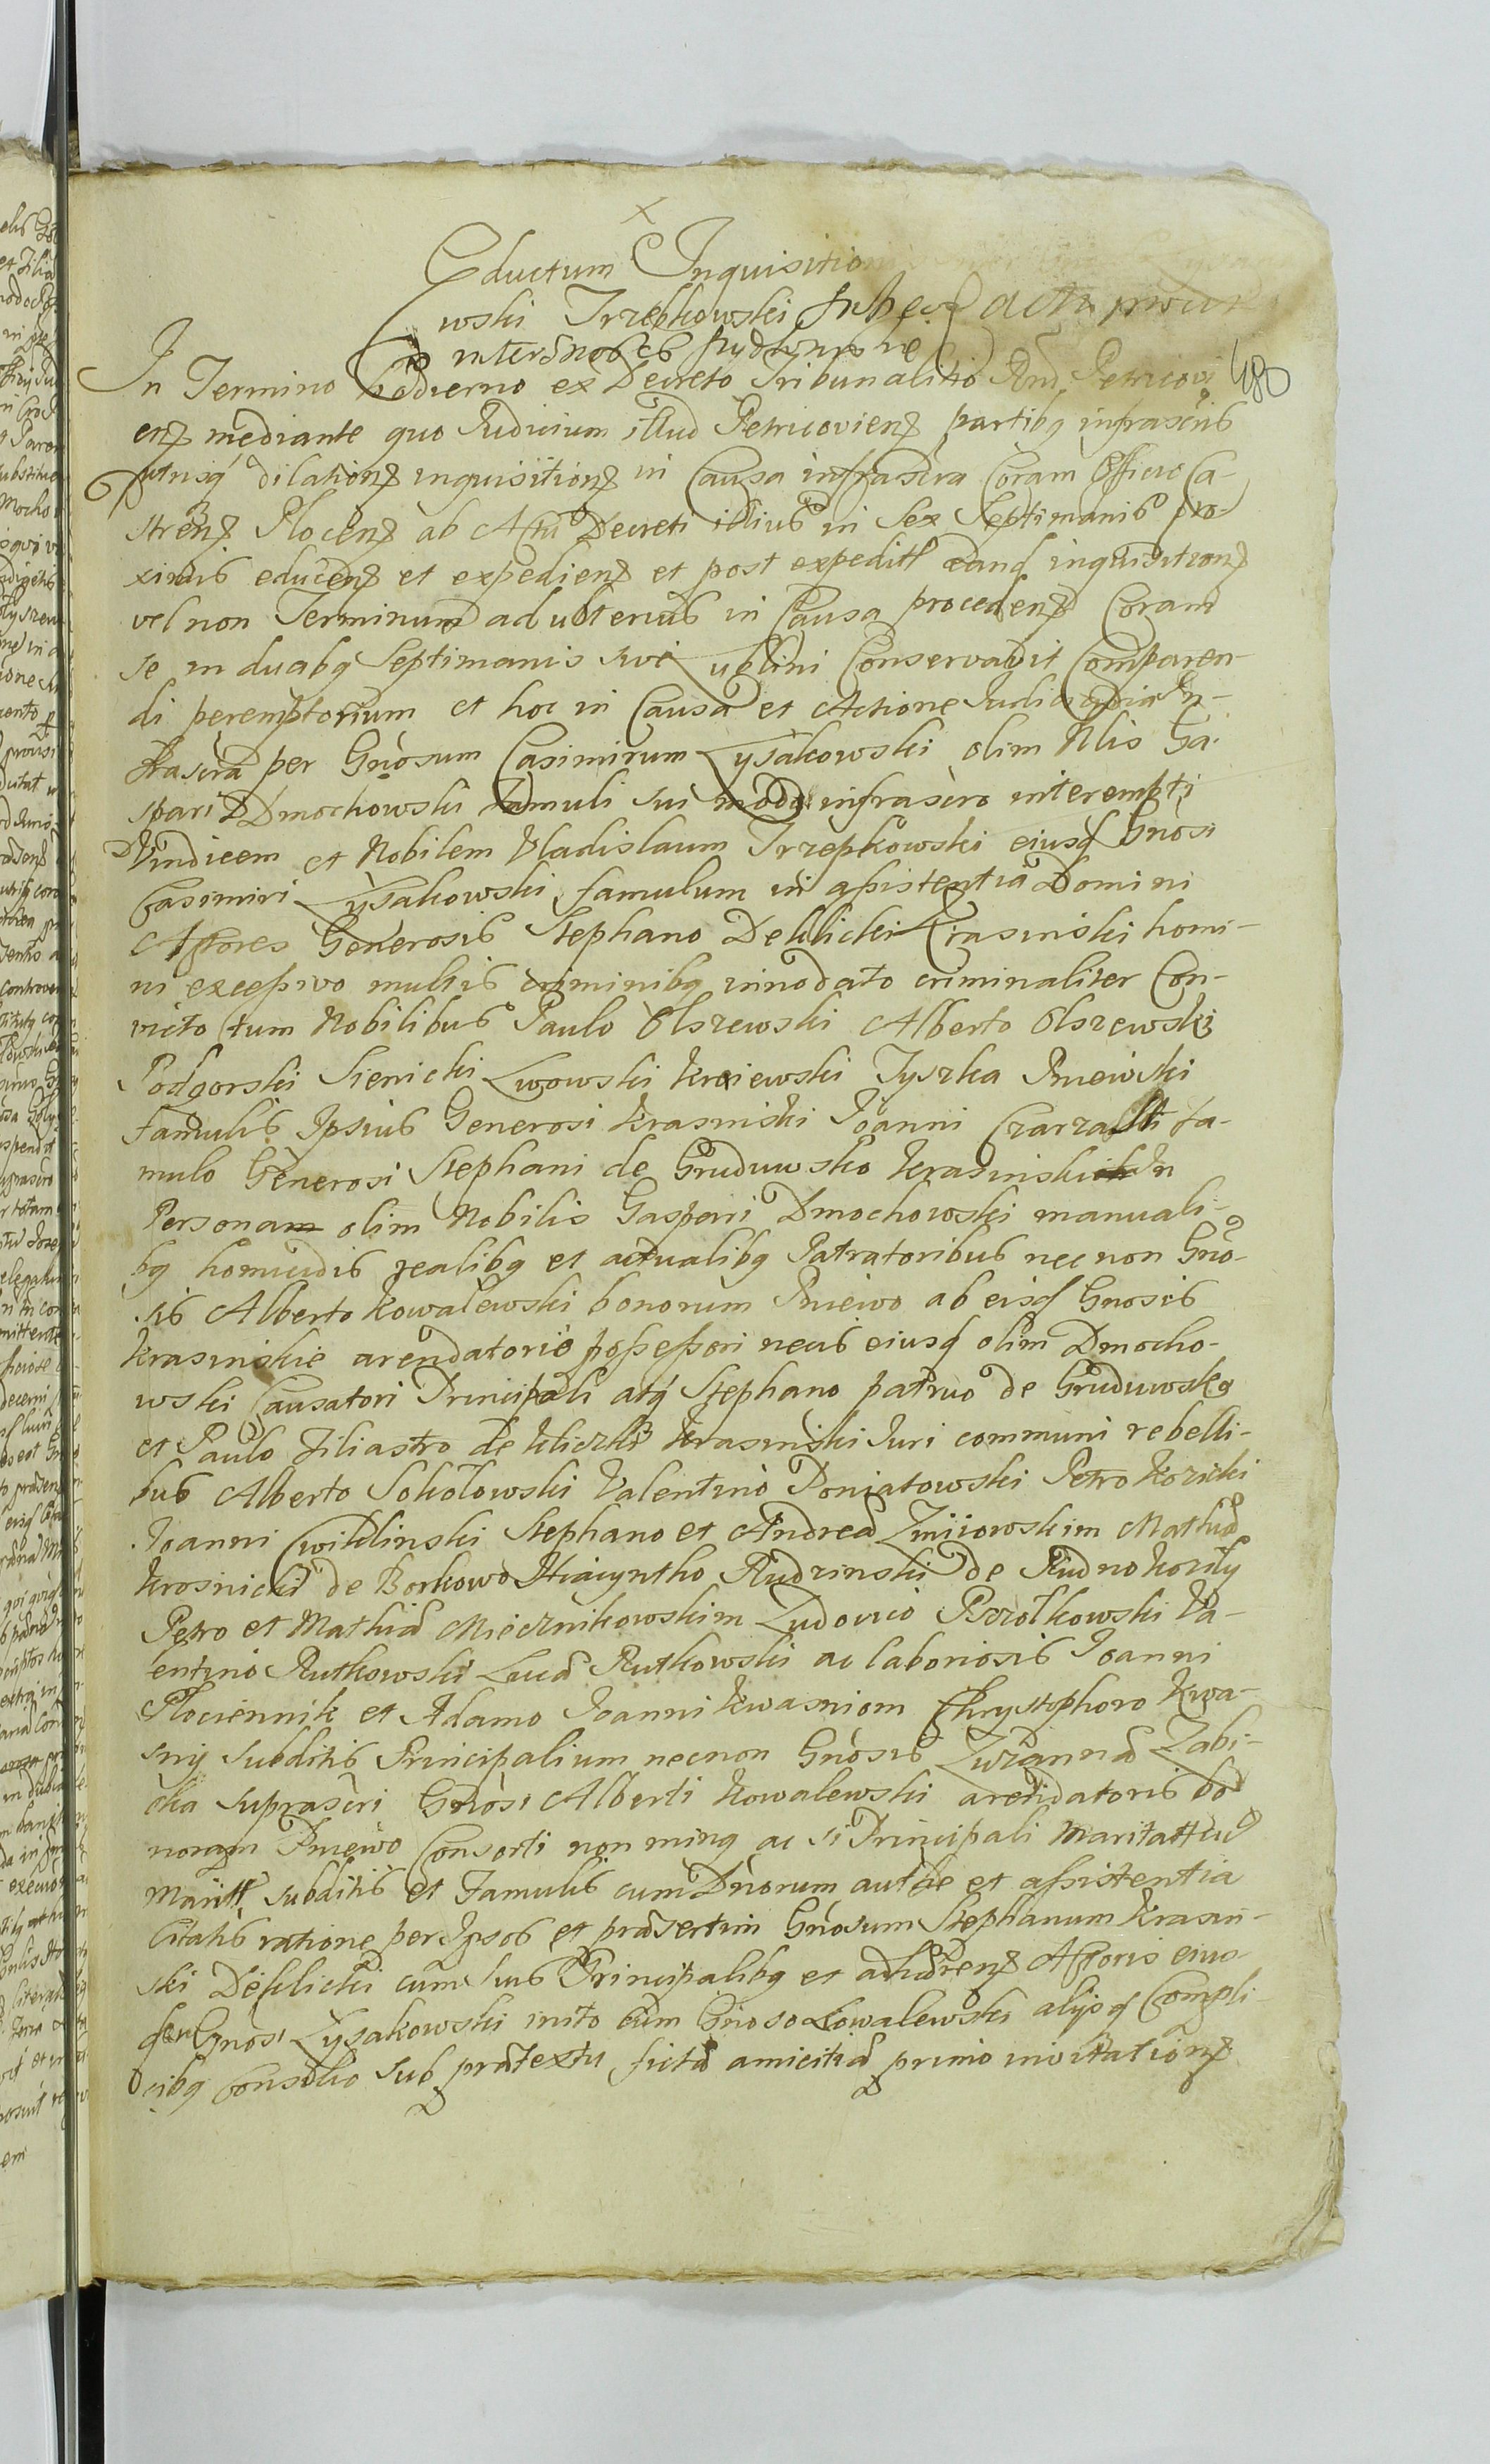 Eductum Inquisitio
wski Trzebkowski
In Termino hodierno ex Decreto Tribunalitio Petricovi
enȝ mediante quo Judicium illud Petricovienȝ partibꝗ infrascris
utrisqꝫ dilationȝ inquisitionȝ in Causa infrascra Coram Officio Ca-
strenȝ Plocenȝ ab Actu Decreti illius in Sex Septimanis pro-
ximis educenȝ et expedienȝ et post expeditt eand inquisitionȝ
vel non Terminum ad ulterius in Causa procedenȝ Coram
se in duabꝗ Septimanis Conservavit Comparen-
di peremptorium et hoc in Causa et Actione Judiciaria In-
frascra per Gnosum Casimirum Łysakowski olim Nlis Ga-
spari Dmochowski famuli sui modo infrascro interempti
Vindicem et Nobilem Vladislaum Trzepkowski eiusd Gnosi
Casimiri Łysakowski famulum in assistentia Domini
Actores Generosis Stephano De Klicki Krasinski homi-
ni excessivo multis criminibꝗ innodato criminaliter Con-
victo tum Nobilibus Paulo Olszewski Alberto Olszewski
Podgorski Sienicki Lwowski Kraiewski Tyszka Pniewski
famulis Ipsius Generosi Krasinski Joanni fa-
mulo Generosi Stephani de Gruduwsko Krasinski In
Personam olim Nobilis Gaspari Dmochowski manuali-
bꝗ homicidis realibꝗ et actualibꝗ Patratoribus nec non Gno-
sis Alberto Kowalewski bonorum Pniewo ab eisd Gnosis
Krasinskie arendatorio possessori necis eiusd olim Dmocho-
wski Causatori Principali atqꝫ Stephano patruo de Gruduwsko
et Paulo Filiastro de Kliczki Krasinski Juri communi rebelli-
bus Alberto Sokołowski Valentino Poniatowski Petro Kozicki
Joanni Cwiklinski Stephano et Andrea Zmiiowskim Mathia
Krosnicki de Borkowo Hiacyntho Rudzinski de Rudno Kosiły
Petro et Mathia Miecznikowskim Ludovico Pszolkowski Va-
lentino Rutkowski Luca Rutkowski ac laboriosis Joanni
Płociennik et Adamo Joanni Kwasniom Chrystophoro Kwa-
sny subditis Principalium necnon Gnosis Zuzanna Zabi-
cka suprascri Gnosi Alberti Kowalewski arendatoris bo
norum Pniewo Consorti non minꝗ ac si Principali
subditis et Famulis cum Dnorum authe et assistentia
Citatis ratione per Ipsos et præsertim Gnosum Stephanum Krasin-
ski De Klicki cum suis Principalibꝗ et adhærenȝ Actoris eius-
dem Gnosi Łysakowski inito cum Gnoso Kowalewski alijsqꝫ Compli-
cibꝗ consilio sub prætextu fictæ amicitiæ primo invitationȝ